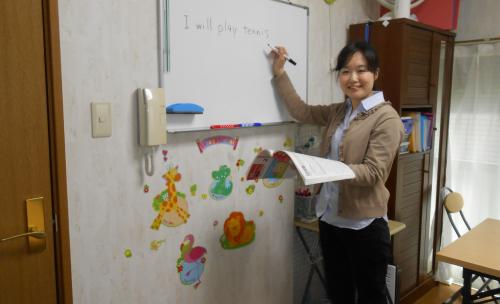 I will play tennis